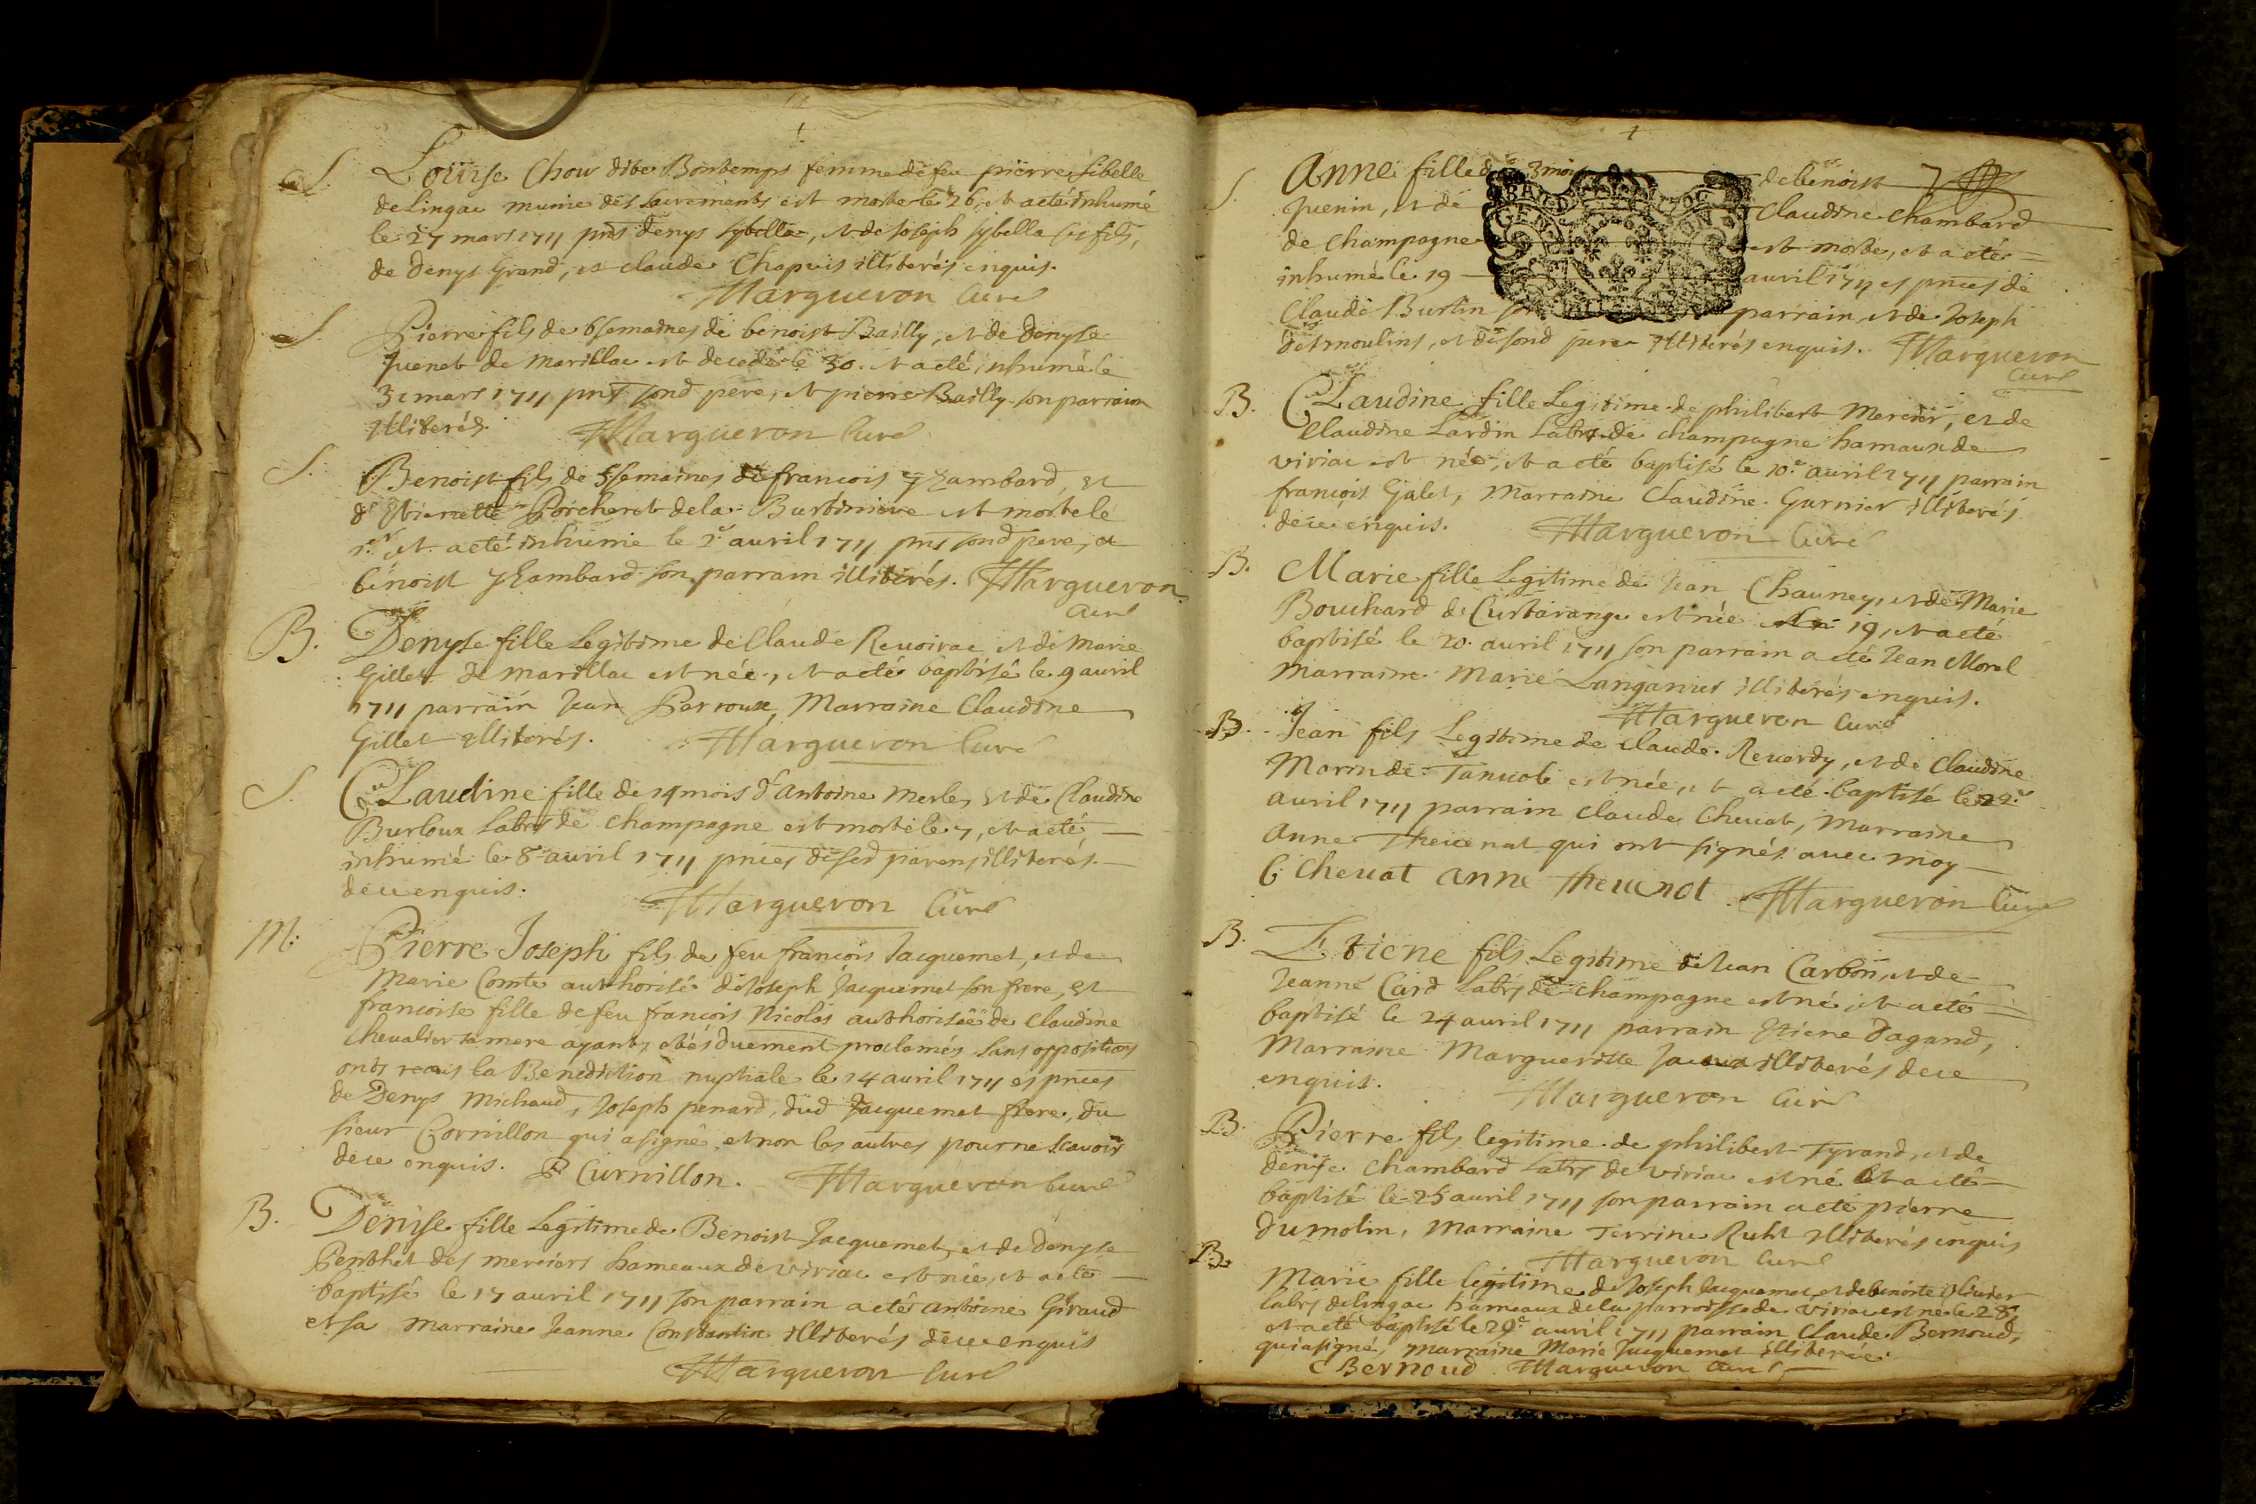 S. Loüise Chow dite Bontemps femme de feu pierre sibelle
de Lingac munie des sacrements est morte le 26, et a eté inhumé
le 27 mars 1711 pnts denys sybelle, et de Joseph sybelle ses fils,
de Denys Grand, et claude Chapuis illiterés enquis.
Margueron Curé
S. Pierre fils de 6 semaines de benoist Bailly, et de Denyse
Juenet de Marillac est decedé le 30. et a eté inhumé le
31 mars 1711 pnt sond pere, et pierre Bailly son parrain
Illiterés. Margueron Curé
S. Benoist fils de 5 semaines de francois Chambard, et
d'Etienette Porcheret de la Burtiniere est mort le
1.er et a eté inhumé le 2.e avril 1711 pnts sond pere, et
benoist Chambard son parrain illiterés. Margueron
Curé
B. Denyse fille Legitime de Claude Revoirac et de Marie
Gillet de marillac est née, et a eté baptisé le 9 avril
1711 parrain Jean Perroux, Marraine Claudine
Gillet Illiterés. Margueron Curé
S. CLaudine fille de 14 mois d'antoine Merle, et de Claudine
Burloux Labrs de champagne est morte le 7, et a eté
inhumé le 8.e avril 1711 pnces desed parens illiterés
dece enquis. Margueron Curé
M. Pierre Joseph fils de feu francois Jacquemet, et de
Marie Comte authorisé de Joseph Jacquemet son frere, et
francoise fille de feu francois Nicolas authorisëe de Claudine
Chevalier sa mere ayants etés duement proclamés sans oppositions
onts receus la Benediction nuptiale le 14 avril 1711 es pnces
de Denys Michaud, Joseph penard, dud Jacquemet frere, du
sieur Cornillon qui a signé, et non les autres pour ne scavoir
dece enquis. P Curnillon. Margueron Curé
B. Denyse fille Legitime de Benoist Jacquemet, et de Denyse
Penthet des merciers hameaux de viriac est née, et a eté
baptisé le 17 avril 1711 son parrain a eté antoine Giraud
et sa marraine Jeanne Constantin illiterés dece enquis
Margueron Curé
S. Anne fille de 3 mois de benoist
Juenin, et de Claudine Chambard
de Champagne est morte, et a eté
inhumé le 19 avril 1711 es pnces de
Claude Burtin son parrain, et de Joseph
desmoulins, et de sond pere Illiterés enquis. Margueron
Curé
B. CLaudine fille Legitime de philibert Mercier, et de
Claudine Lardin Labrs de champagne hamaux de
viriac est née, et a eté baptisé le 10.e avril 1711 parrain
françois Galet, Marraine Claudine Garnier illiterés
dece enquis. Margueron Curé
B. Marie fille Legitime de Jean Chauney, et de Marie
Bouchard de Curtarange est née le 19, et a eté
baptisé le 20. avril 1711 son parrain a eté Jean Morel
Marraine Marie Langanier illiterés enquis.
Margueron Curé
B. Jean fils Legitime de claude Revordy, et de Claudine
Morin de Tanvol est née, et a eté baptisé le 22.e
avril 1711 parrain claude Chevat, Marraine
Anne Thevenat qui ont signés avec moy
C Chevat anne thevenot Margueron Curé
B. Etiene fils Legitime de Jean Carbon, et de
Jeanne Card Labrs de champagne est né, et a eté
baptisé le 24 avril 1711 parrain Etiene Dagand,
Marraine Margueritte illiterés dece
enquis. Margueron Curé
B. Pierre fils legitime de philibert Tyrand, et de
denise Chambard Labrs de viriac est né et a eté
baptisé le 25 avril 1711 son parrain a eté pierre
Dumolin, Marraine Terrine Ruht Illiterés enquis
Margueron Curé
B. Marie fille legitime de Joseph Jacquemet, et de benoite Olivier
labrs de lingac hameaux de la parroisse de viriac est née le 28.e
et a eté baptisé le 29.e avril 1711 parrain Claude Bernoud,
qui a signé, marraine Marie Jacquemet illiterée.
C Bernoud Margueron Curé